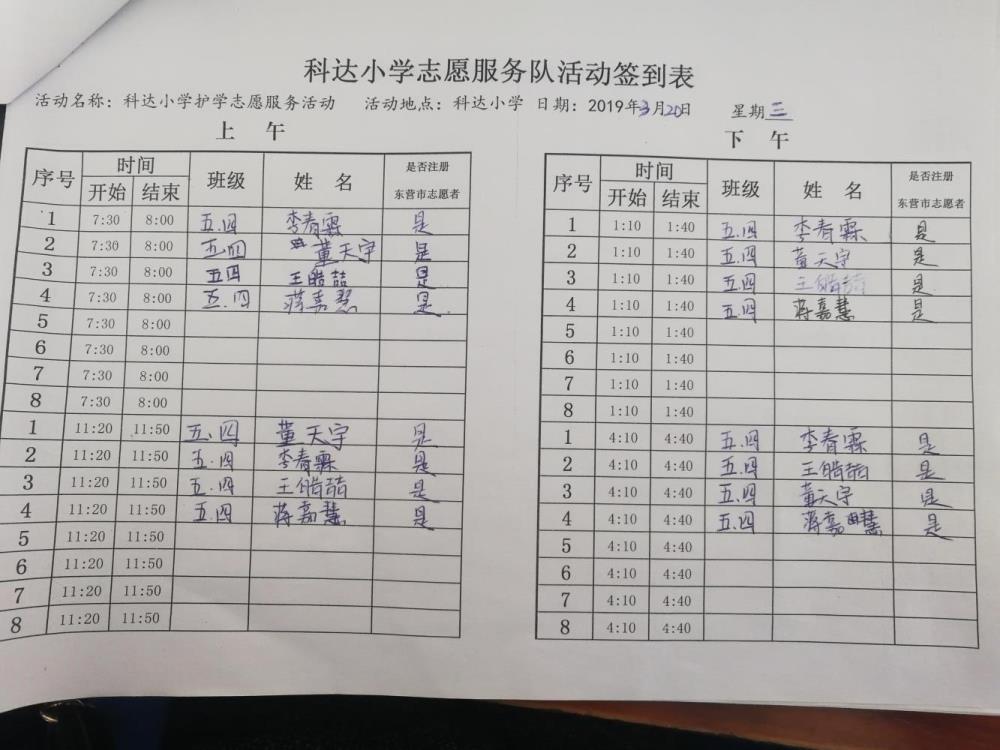 科达小学志愿服务队活动签到表
活动名称：科达小学护学志愿服务活动 活动地点：科达小学 日期：2019年3月20日 星期三
上 午
序号 时间 班级 姓 名 是否注册
开始 结束 东营市志愿者
1 7:30 8:00 五.四 李春霖 是
2 7:30 8:00 五.四 董天宇 是
3 7:30 8:00 五四 王皓喆 是
4 7:30 8:00 五.四 蒋嘉慧 是
5 7:30 8:00
6 7:30 8:00
7 7:30 8:00
8 7:30 8:00
1 11:20 11:50 五.四 董天宇 是
2 11:20 11:50 五.四 李春霖 是
3 11:20 11:50 五.四 王皓喆 是
4 11:20 11:50 五.四 蒋嘉慧 是
5 11:20 11:50
6 11:20 11:50
7 11:20 11:50
8 11:20 11:50
下 午
序号 时间 班级 姓 名 是否注册
开始 结束 东营市志愿者
1 1:10 1:40 五.四 李春霖 是
2 1:10 1:40 五.四 董天宇 是
3 1:10 1:40 五.四 王皓喆 是
4 1:10 1:40 五.四 蒋嘉慧 是
5 1:10 1:40
6 1:10 1:40
7 1:10 1:40
8 1:10 1:40
1 4:10 4:40 五.四 李春霖 是
2 4:10 4:40 五.四 王皓喆 是
3 4:10 4:40 五.四 董天宇 是
4 4:10 4:40 五.四 蒋嘉慧 是
5 4:10 4:40
6 4:10 4:40
7 4:10 4:40
8 4:10 4:40